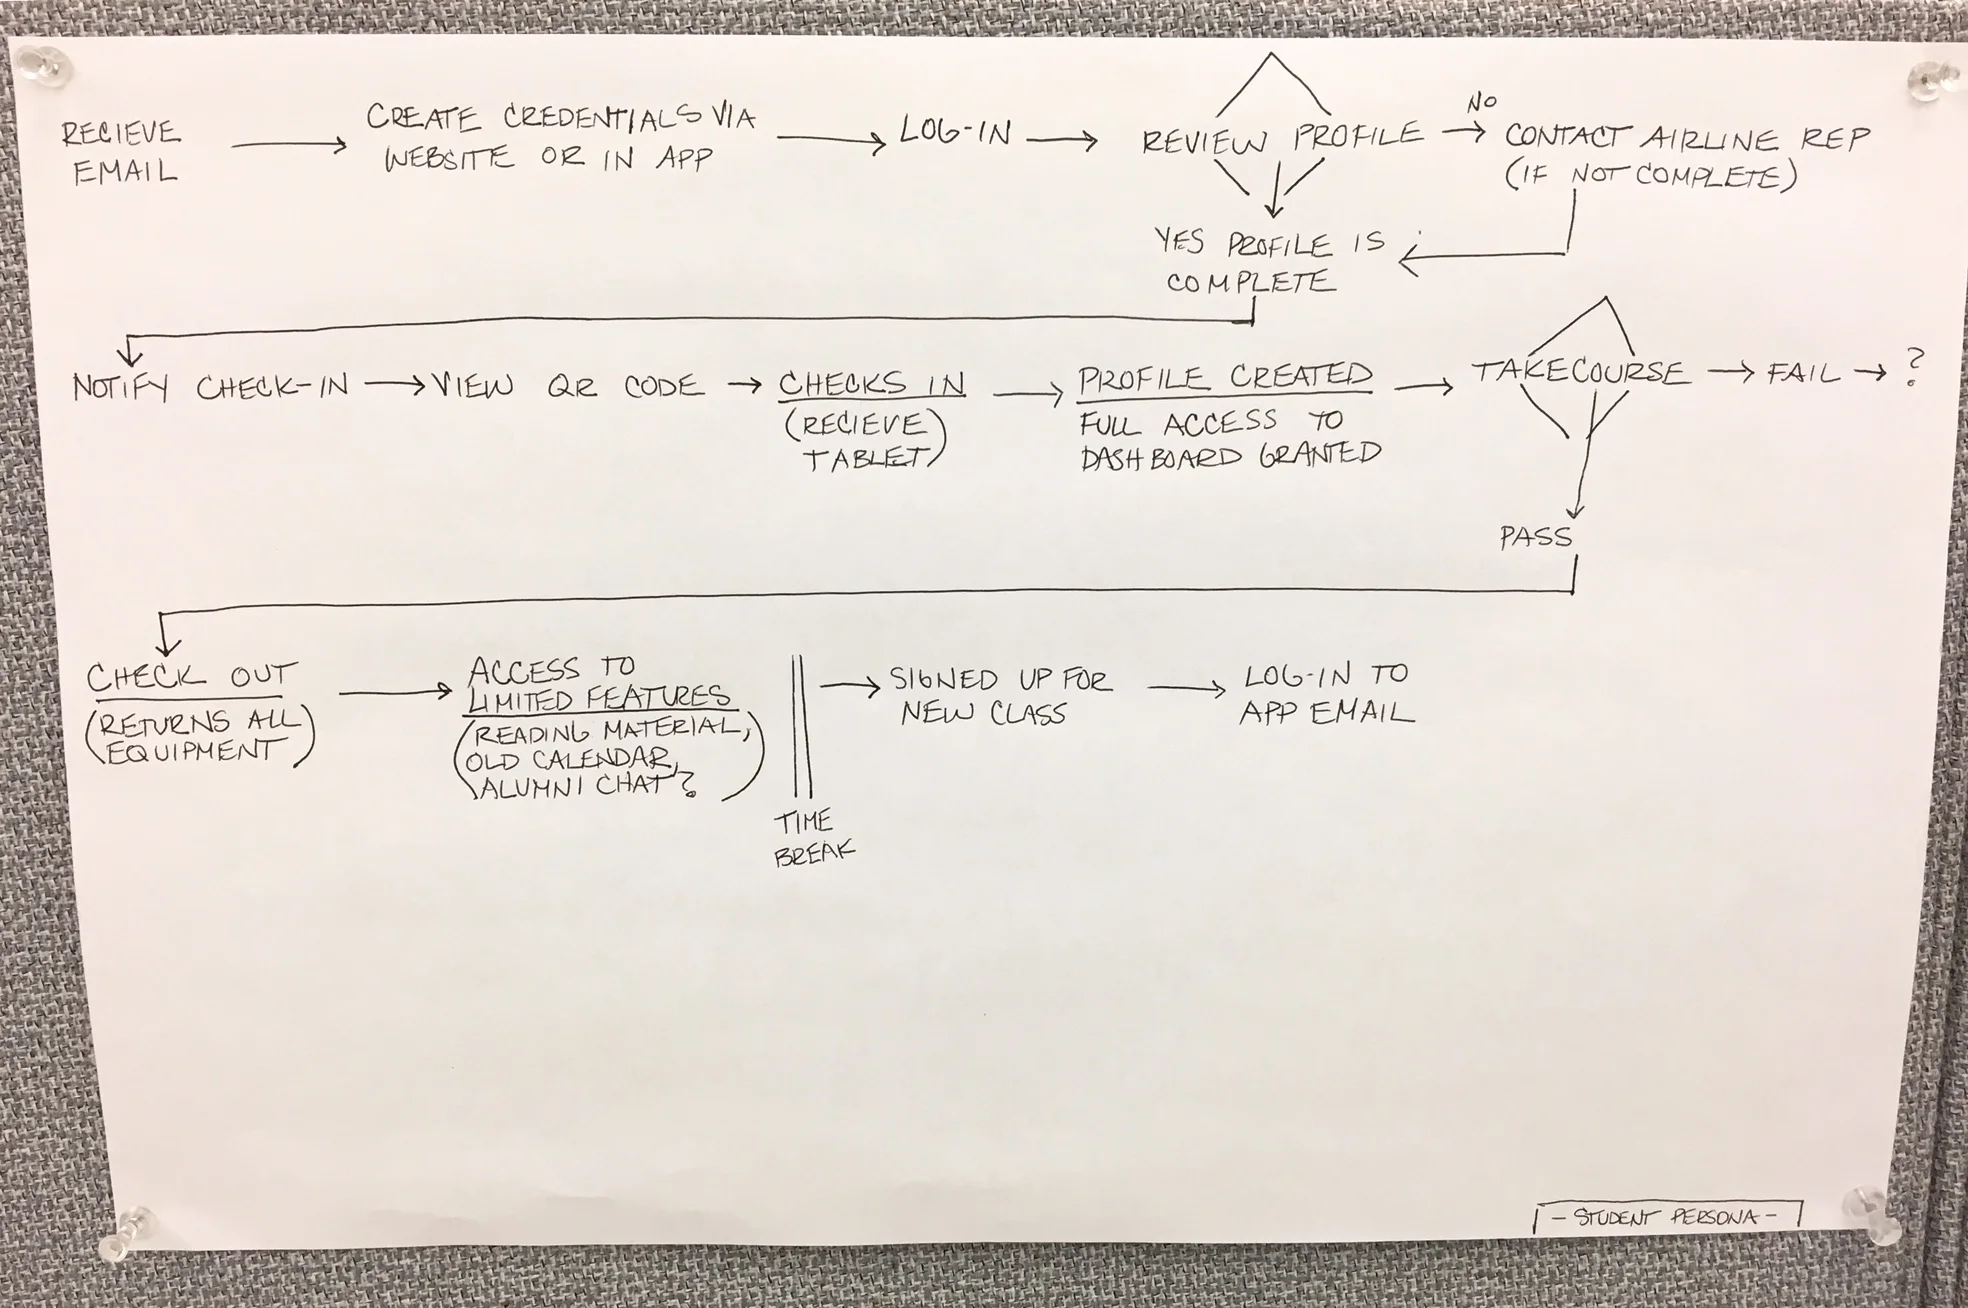 RECIEVE
EMAIL
CREATE CREDENTIALS VIA
WEBSITE OR IN APP
LOG-IN
REVIEW PROFILE
NO
CONTACT AIRLINE REP
(IF NOT COMPLETE)
YES PROFILE IS
COMPLETE
NOTIFY CHECK-IN
VIEW QR CODE
CHECKS IN
(RECIEVE
TABLET)
PROFILE CREATED
FULL ACCESS TO
DASHBOARD GRANTED
TAKE COURSE
FAIL
?
PASS
CHECK OUT
(RETURNS ALL
EQUIPMENT)
ACCESS TO
LIMITED FEATURES
(READING MATERIAL,
OLD CALENDAR,
ALUMNI CHAT?)
TIME
BREAK
SIGNED UP FOR
NEW CLASS
LOG-IN TO
APP EMAIL
- STUDENT PERSONA -